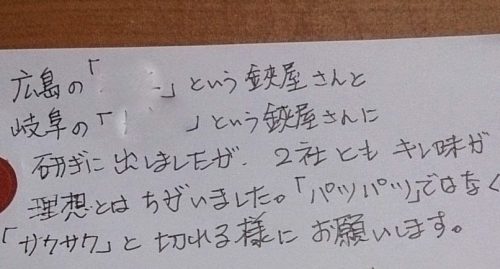 広島の「　」という鋏屋さんと
岐阜の「　」という鋏屋さんに
研ぎに出しましたが、2社ともキレ味が
理想とはちがいました。「パツパツ」ではなく
「サクサク」と切れる様にお願いします。